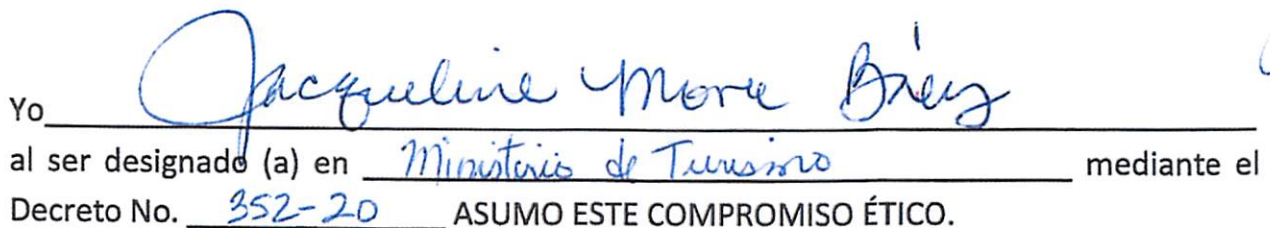 Yo Jacqueline Mora Báez
al ser designado (a) en Ministerio de Turismo mediante el
Decreto No. 352-20 ASUMO ESTE COMPROMISO ÉTICO.